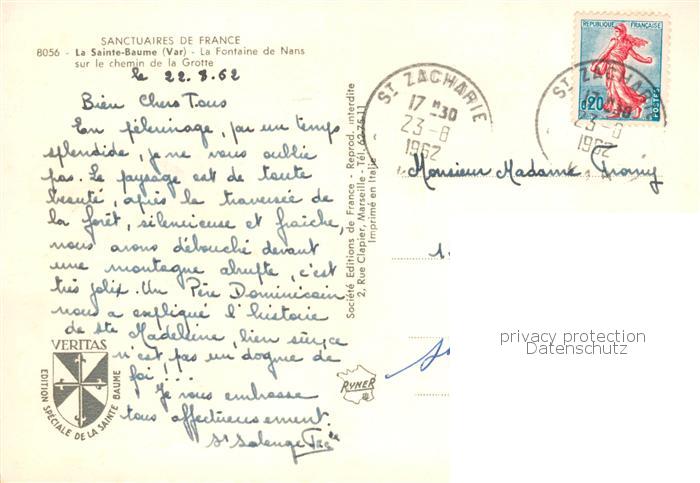 SANCTUAIRES DE FRANCE
8056 - La Sainte-Baume (Var) - La Fontaine de Nans
sur le chemin de la Grotte
le 22.8.62
Bien Chers Tous
En pèlerinage, par un temps
splendide, je ne vous oublie
pas. Le paysage est de toute
beauté, après la traversée de
la forêt, silencieuse et fraîche,
nous avons débouché devant
une montagne abrupte, c'est
très joli. Un Père Dominicain
nous a expliqué l'histoire
de Ste Madeleine, bien sûr, ce
n'est pas un dogme de
foi...
Je vous embrasse
tous affectueusement.
Sr Solange
VERITAS
EDITION SPÉCIALE DE LA SAINTE BAUME
Société Editions de France - Reprod. interdite
2, Rue Clapier, Marseille - Tél. 62-75-11
Imprimé en Italie
RYNER
REPUBLIQUE FRANÇAISE
0,20
POSTES
ST ZACHARIE
17 H 30
23-8
1962
ST ZACHARIE
17 H 30
23-8
1962
Monsieur Madame
privacy protection
Datenschutz